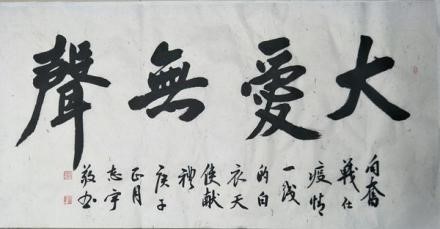 大愛無聲
向奮
戰在
疫情
一线
的白
衣天
使献
禮
庚子
正月
志宇
敬书